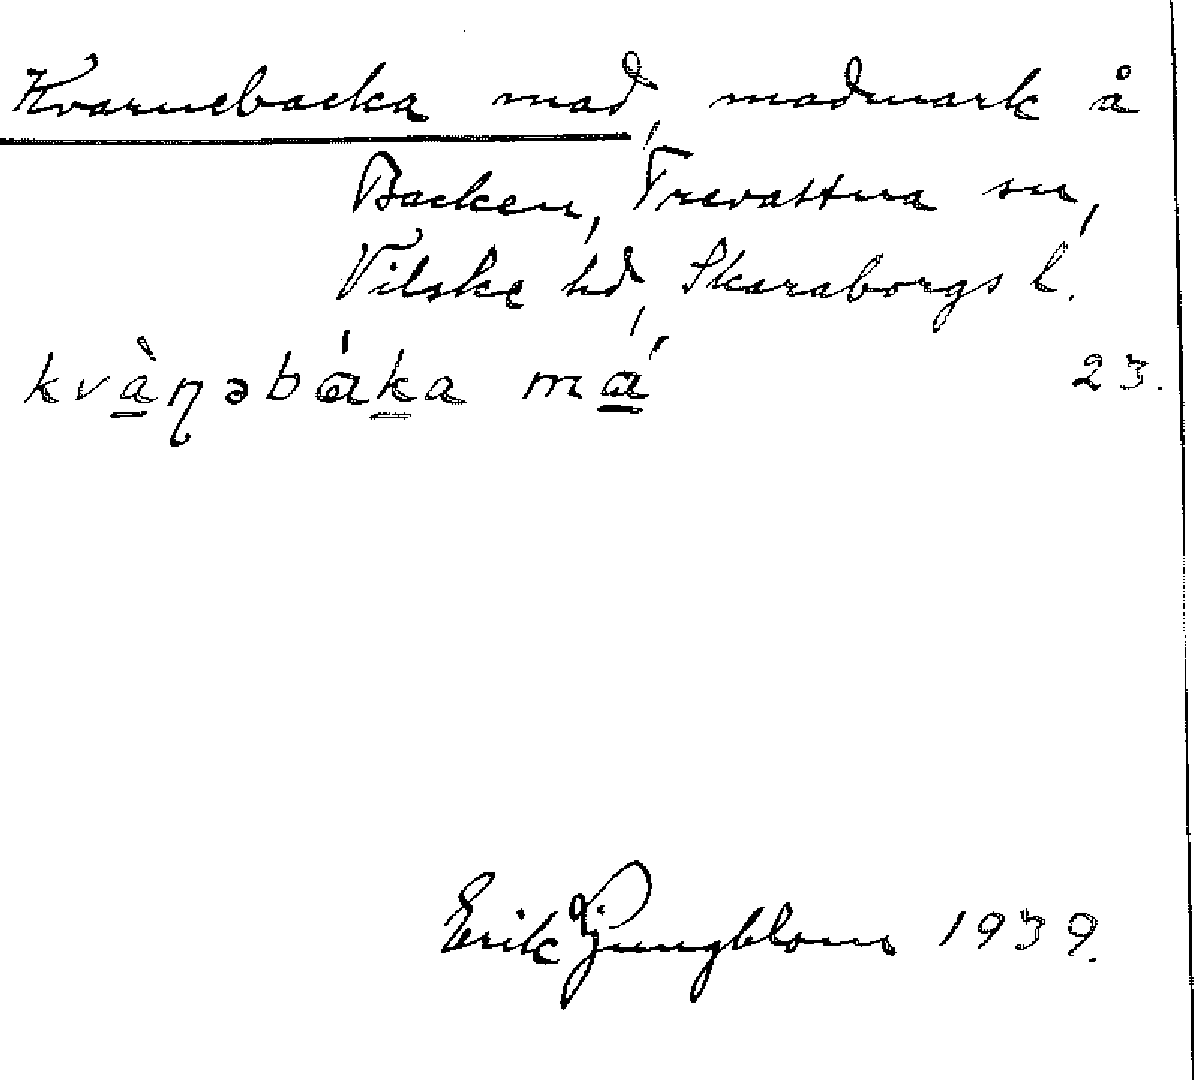 Kvarnebacka mad, madmark å
Backen, Trevattna sn,
Vilske hd, Skaraborgs l.
kvàɳəbáka má 23.
Erik Ljungblom 1939.